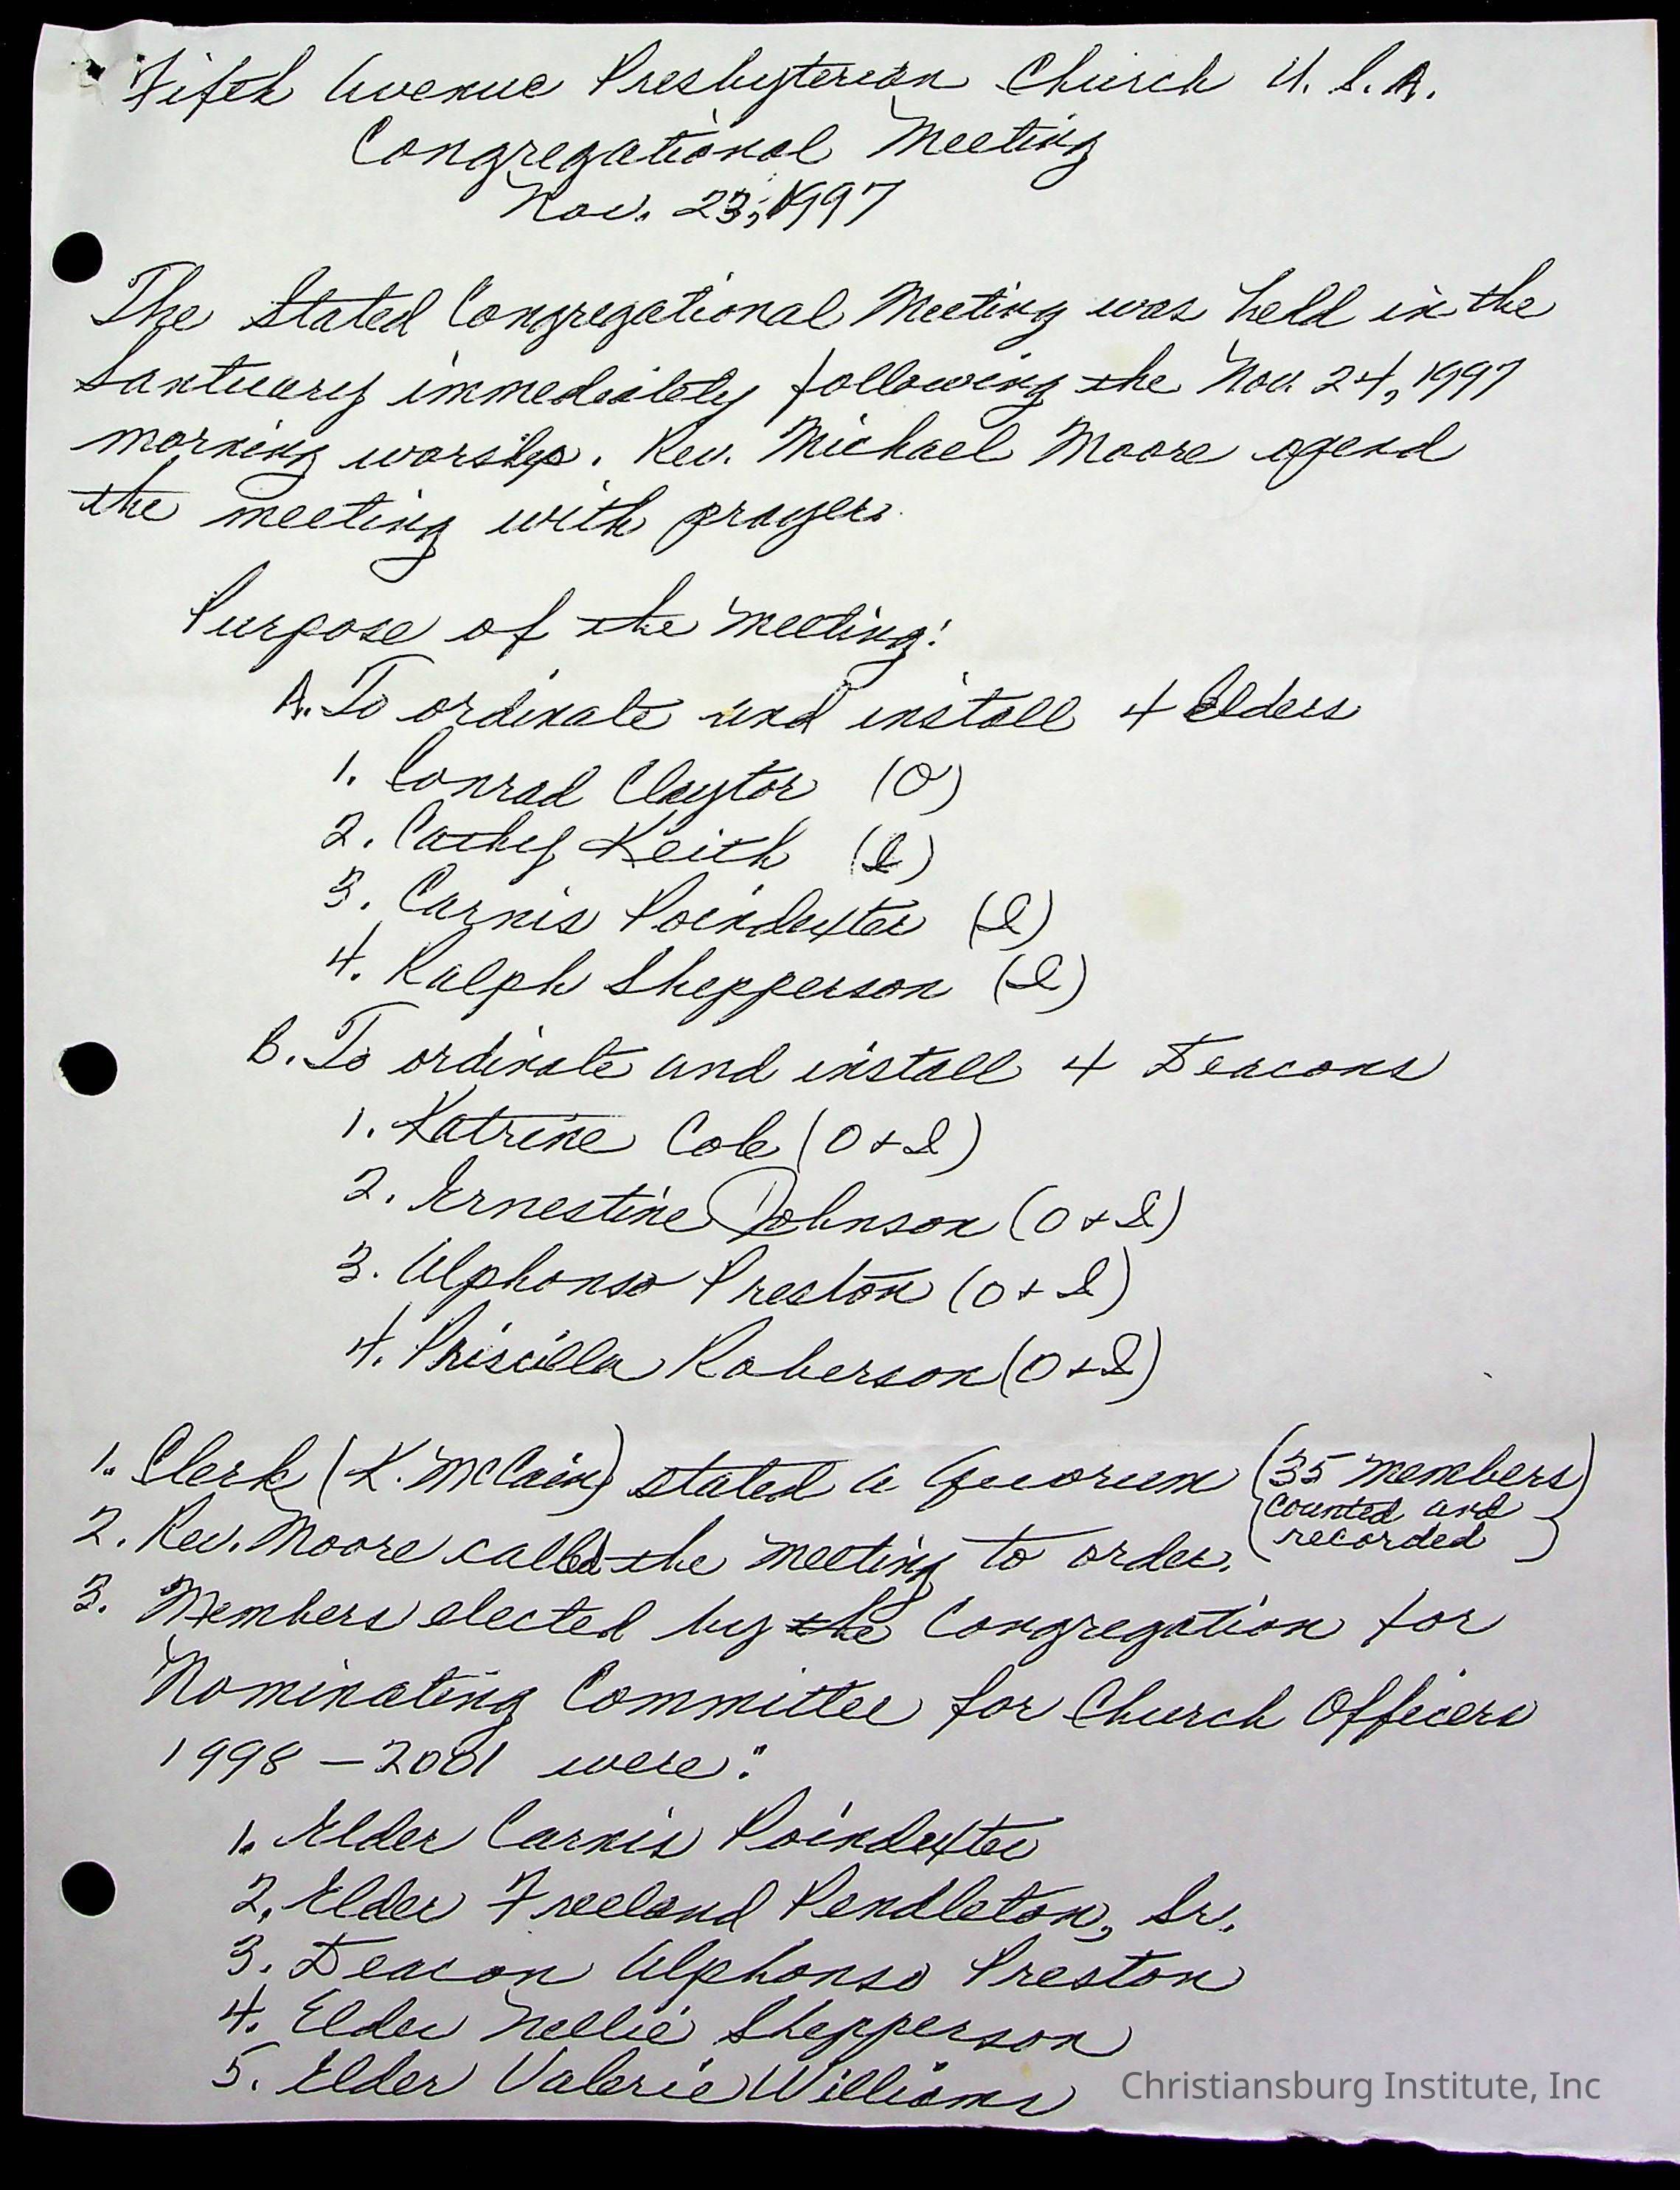 Fifth Avenue Presbyterian Church U.S.A.
Congregational Meeting
Nov. 23, 1997
The Stated Congregational Meeting was held in the
Santuary immediately following the Nov. 24, 1997
morning worship. Rev. Michael Moore opend
the meeting with prayer.
Purpose of the Meeting:
A. To ordinate and install 4 Elders
1. Conrad Claytor (O)
2. Cathy Keith (I)
3. Carnis Poindexter (I)
4. Ralph Shepperson (I)
B. To ordinate and install 4 Deacons
1. Katrine Cole (O + I)
2. Ernestine Johnson (O + I)
3. Alphonso Preston (O + I)
4. Priscilla Roberson (O + I)
1. Clerk (K. McCain) stated a Quorum (35 members)
counted and
recorded
2. Rev. Moore called the meeting to order.
3. Members elected by the Congregation for
Nominating Committee for Church Officers
1998 – 2001 were:
1. Elder Carnis Poindexter
2. Elder Freeland Pendleton, Sr.
3. Deacon Alphonso Preston
4. Elder Nellie Shepperson
5. Elder Valerie Williams
Christiansburg Institute, Inc